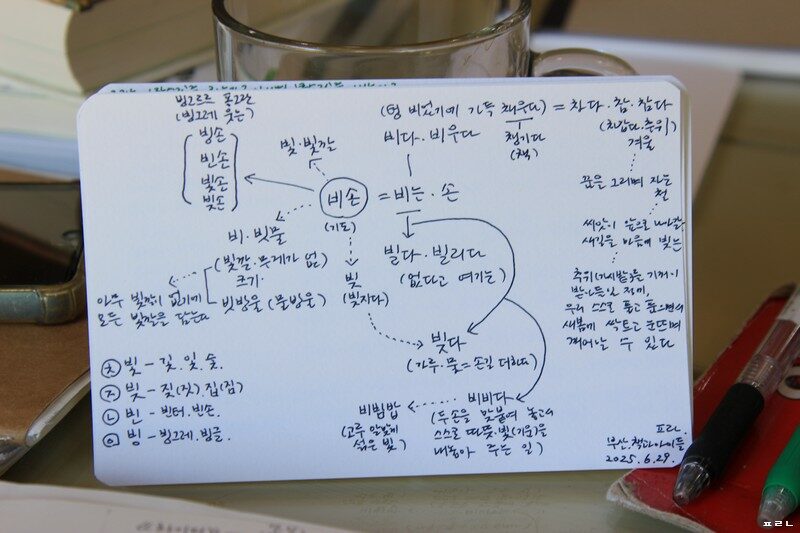 빙그르르 동그란
(빙그레 웃는)
빙손
빈손
빛손
빚손
빛·빛깔
(텅 비었기에 가득 채우다) = 차다·참·참다
비다·비우다
챙기다
(책)
(차갑다·추위)
겨울
꿈을 그리며 자는
철
씨앗이 앞으로 나아갈
생각을 마음에 빚는
추위
받아들인 몸이,
우리 스스로 품고 풀으면서
새봄께 싹트고 눈뜨며
깨어날 수 있다
비손 = 비는·손
(기도)
비·빗물
(빛깔·무게가 없)
크기·
빗방울 (물방울)
아무 빛깔이 없기에
모든 빛깔을 담는다
빚
(빚지다)
빌다·빌리다
(없다고 여기는)
빚다
(가루·물=손길 더하다)
비비다
(두손을 맞붙여 놓고서
스스로 따뜻·빛(기운)을
내놓아 주는 일)
비빔밥
(고루 알맞게
섞은 빛)
ㅊ 빛 - 깇. 잋. 숯.
ㅈ 빚 - 짖(짓). 집(짐)
ㄴ 빈 - 빈터. 빈손.
ㅇ 빙 - 빙그레. 빙글.
ㅍㄹㄴ.
부산.책과아이들
2025.6.29.
ㅍㄹㄴ